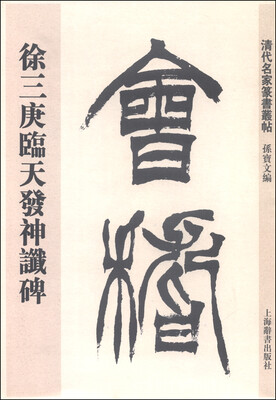 清代名家篆書叢帖
孫寶文編
會稽
徐三庚臨天發神讖碑
上海辭書出版社